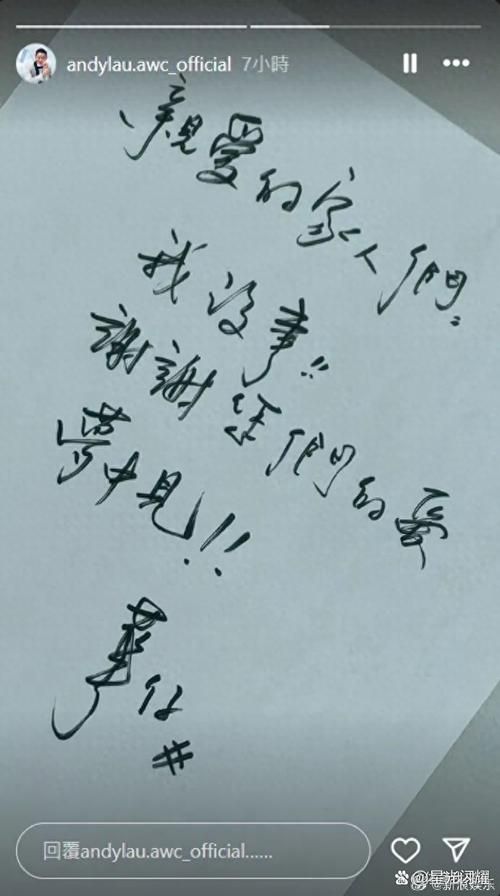 andylau.awc_official 7小時
親愛的家人們：
我沒事!!
謝謝你們的愛
夢中見!!
華仔
#
回覆andylau.awc_official......
@星光闪耀
@新浪娱乐